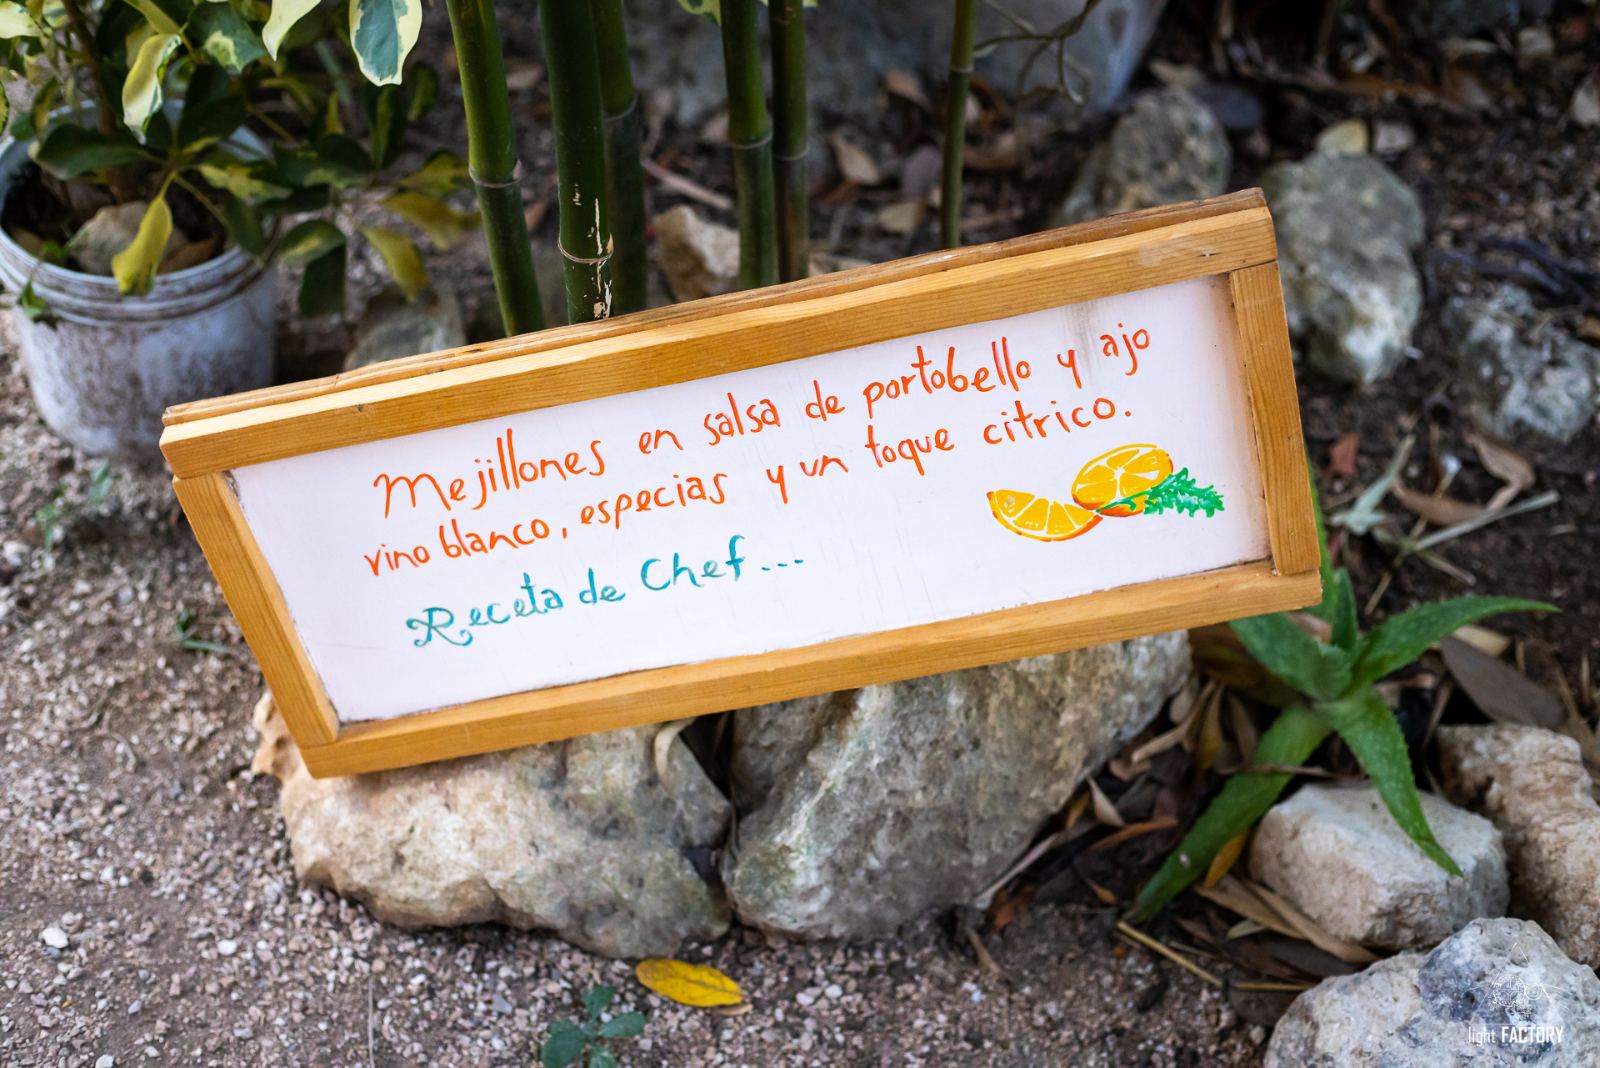 Mejillones en salsa de portobello y ajo
vino blanco, especias y un toque citrico.
Receta de Chef...
light FACTORY